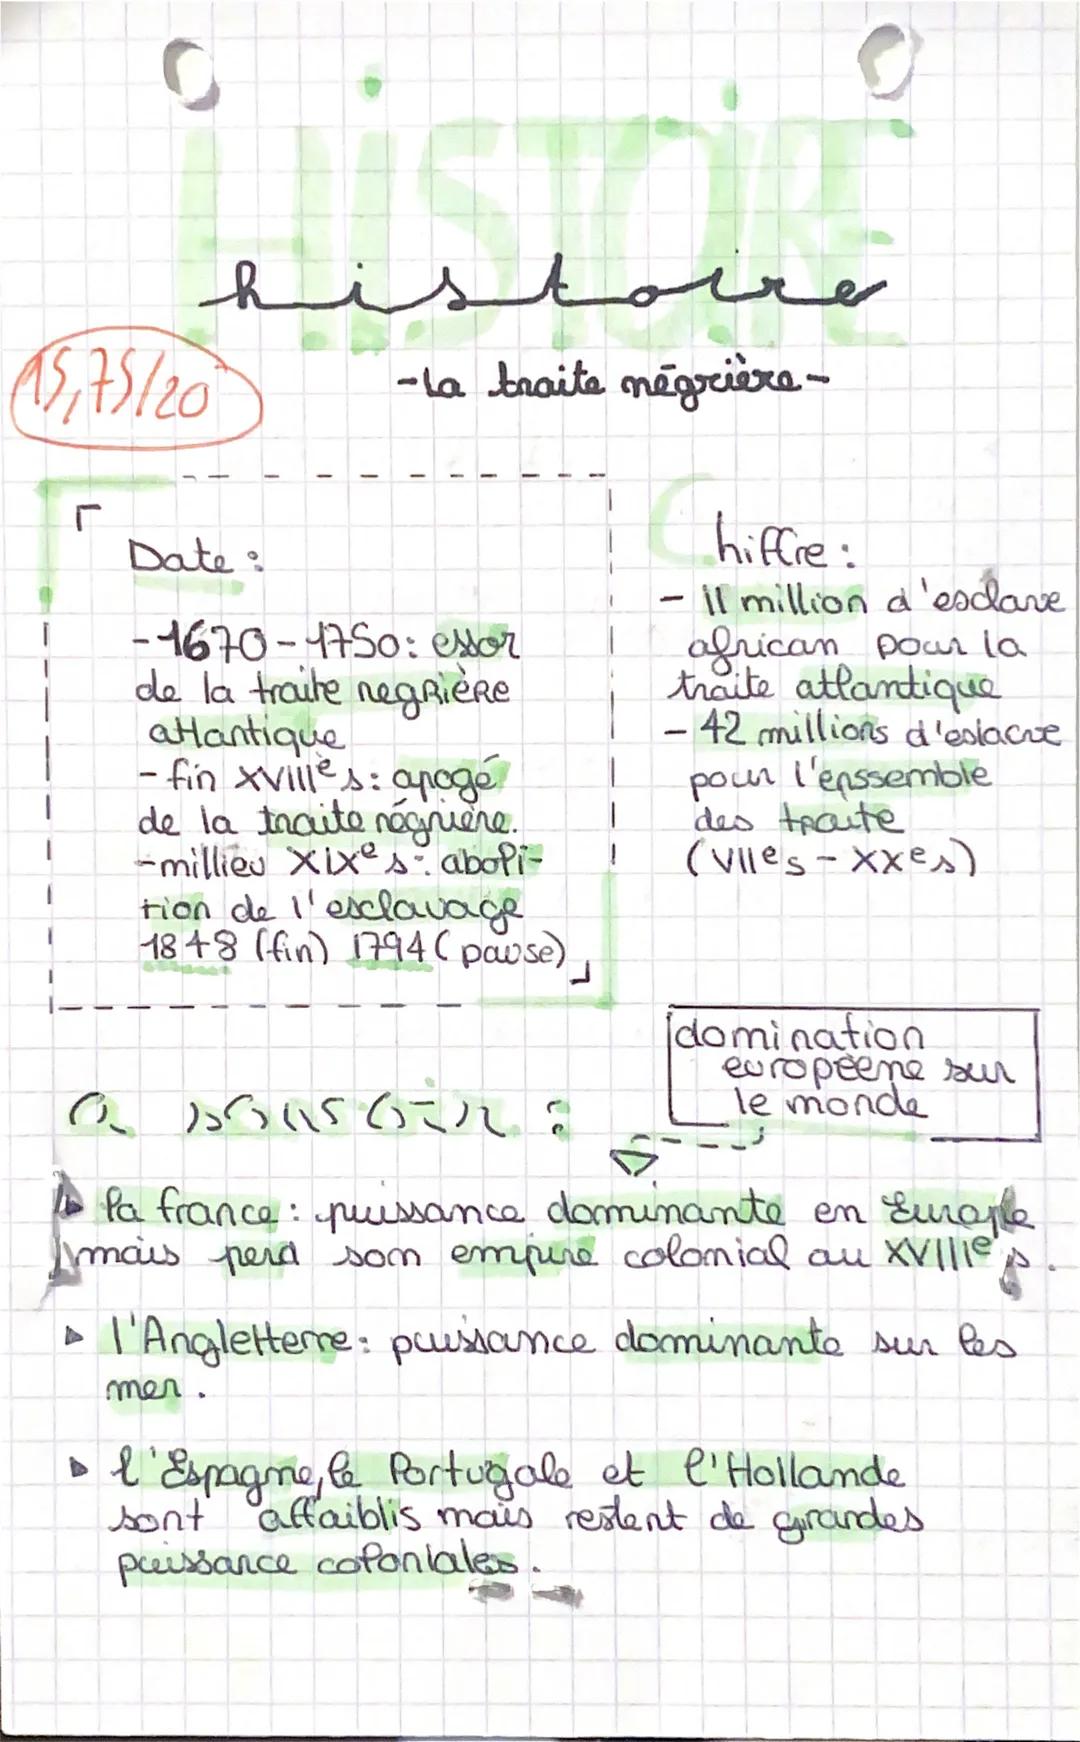 HISTOIRE
histoire
15,75/20
-La traite négrière-
Date :
-1670-1750: essor
de la traite negRièRe
atlantique
- fin XVIIIe s: apogé
de la traite négrière.
-millieu XIXe s: aboli-
tion de l'esclavage
1848 (fin) 1794 ( pause)
Chiffre :
- 11 million d'esclave
african pour la
traite atlantique
- 42 millions d'eslacve
pour l'enssemble
des traite
(VIIes - XXes)
domination
européene sur
le monde
a savoir :
la france : puissance dominante en Europe
mais perd son empire colonial au XVIIIe s.
l'Angletterre: puissance dominante sur les
mer.
l'Espagne, le Portugale et l'Hollande
sont affaiblis mais restent de grandes
puissance coloniales.